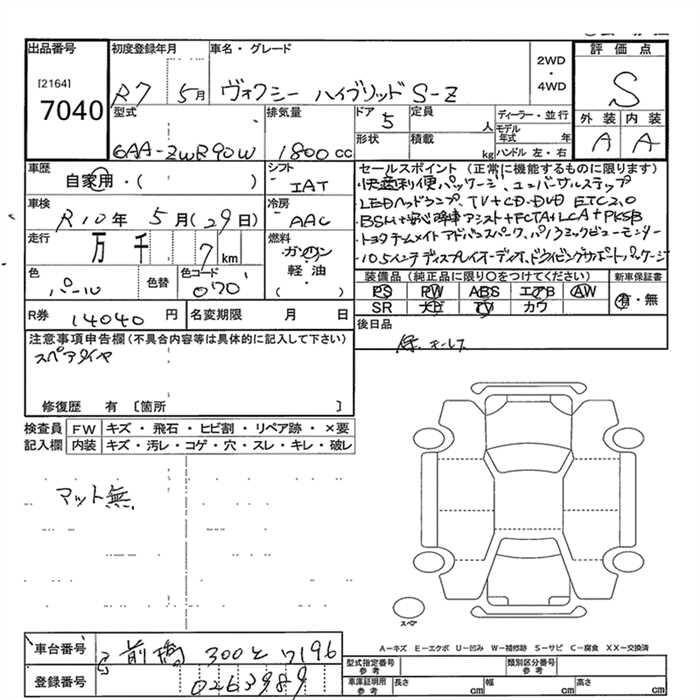 出品番号
[2164]
7040
初度登録年月
R7 5月
車名・グレード
ヴォクシー ハイブリッド S-Z
2WD
・
4WD
評価点
S
外装 内装
A A
型式
6AA-ZWR90W
排気量
1800cc
ドア
5
定員
人
形状
積載
kg
ディーラー・並行
モデル年式 年
ハンドル 左・右
車歴
自家用・( )
シフト
IAT
車検
R10年 5月(29日)
冷房
AAC
走行
万 千 7 km
燃料
ガソリン
軽油
( )
色
パール
色替
色コード
070
R券 14040 円
名変期限 月 日
セールスポイント (正常に機能するものに限ります)
・快適利便パッケージ、ユニバーサルステップ
・LEDヘッドランプ、TV+CD・DVD ETC2.0
・BSM+安心降車アシスト+FCTA+LCA+PKSB
・トヨタチームメイトアドバンスパーク、パノラミックビューモニター
・10.5インチディスプレイオーディオ、ドライビングサポートパッケージ
装備品 (純正品に限り○をつけてください)
PS PW ABS エアB AW
SR 大正 TV カワ
新車保証書
有・無
後日品
保、キーレス
注意事項申告欄(不具合内容等は具体的に記入して下さい)
スペアタイヤ
修復歴 有 〔箇所 〕
検査員記入欄
FW キズ・飛石・ヒビ割・リペア跡・×要
内装 キズ・汚レ・コゲ・穴・スレ・キレ・破レ
マット無
スペア
A－キズ E－エクボ U－凹み W－補修跡 S－サビ C－腐食 XX－交換済
車台番号
登録番号
前橋 300 と 7196
0263989
型式指定番号 参考
類別区分番号 参考
車庫証明用 参考
長さ cm
幅 cm
高さ cm